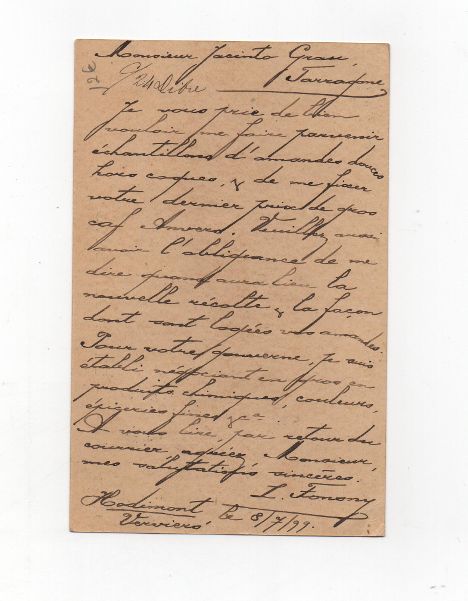 Monsieur Jacinto Grau,
Tarragone
Je vous prie de bien
vouloir me faire parvenir
échantillons d'amandes douces
hors coques, & de me fixer
votre dernier prix de gros
caf Anvers. Veuillez aussi
avoir l'obligeance de me
dire quand aura lieu la
nouvelle récolte & la façon
dont sont logées vos amandes.
Pour votre gouverne, je suis
établi négociant en gros en
produits chimiques, couleurs,
épiceries fines &ca
A vous lire, par retour du
courrier, agréez Monsieur,
mes salutations sincères.
Hodimont le 8/7/99.
Verviers